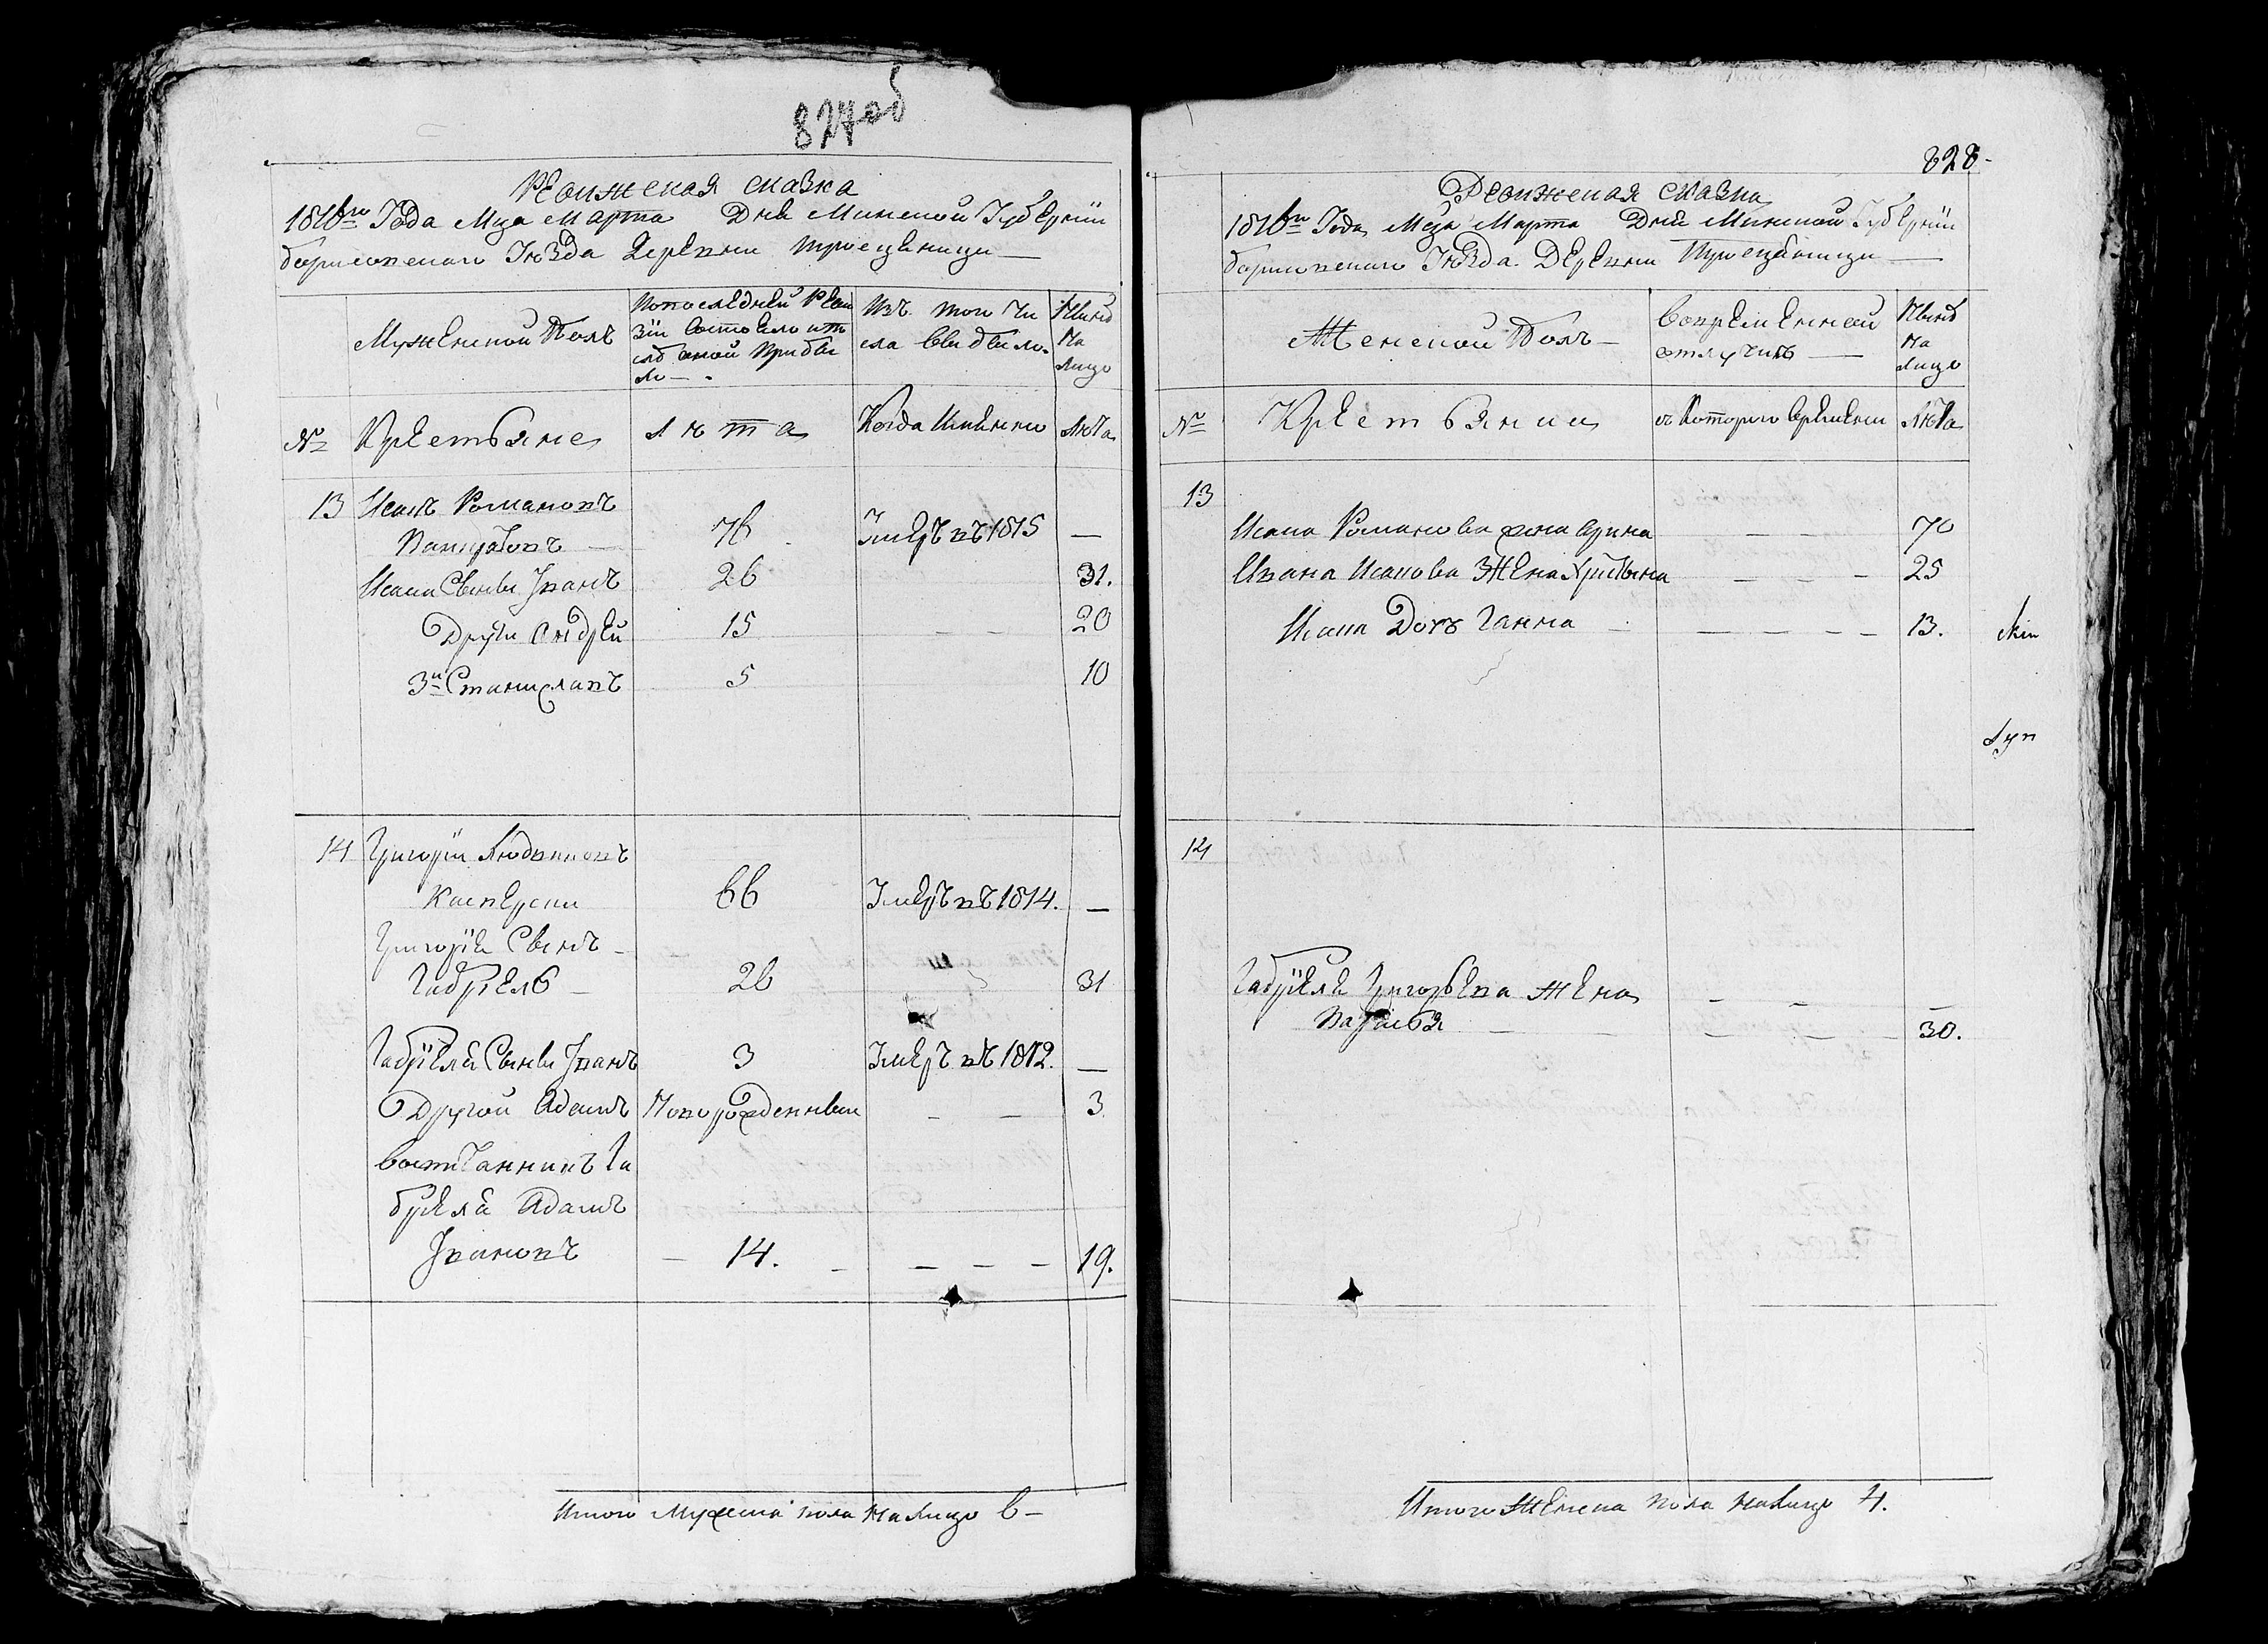 827об
Ревижская сказка
1816го Года Мца Марта Дня Минской Губернии
Борисовскаго Уезда Деревни
Мужеской Полъ
По последней Реви
зіи состояло и по
слѣ оной прибы
ло
Изъ того чи
сла выбыло
Нынѣ
на
лицо
№ Крестьяне
Лѣта
Когда имянно
Лѣта
13 Исакъ Романовъ
76 Умеръ въ 1815 —
Исака Сынъ Иванъ 26 31.
Други Андрей 15 — — 20
3й Станиславъ 5 10
14 Григорій
Касперски 66 Умеръ въ 1814. —
Григорія Сынъ —
Габріель — 26 31
Габріеля Сынъ Иванъ 3 Умеръ въ 1812. —
Другой Адамъ Новорожденный — — 3
воспитанникъ Га
бріеля Адамъ
Ивановъ — 14. — — — — 19.
Итого мужеска пола на лицо 6 —
828
Ревижская сказка
1816го Года Мца Марта Дня Минской Губерніи
Борисовскаго Уезда Деревни
Женской Полъ —
Во временной
отлучкѣ —
Нынѣ
на
лицо
№ Крестьянки
съ которого времени
Лѣта
13
Исака Романова жона Арина — — — 70
Ивана Исакова Жена Христына — — — 25
Исака Дочъ Ганна — — — — — 13.
14
Габріеля Григорьева жена — — —
— — — — 30.
Итого Женска пола на лицо 4.